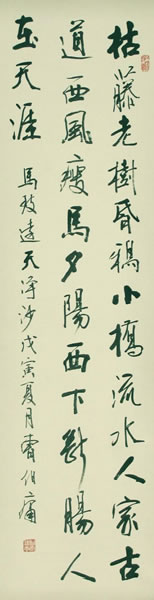 枯藤老樹昏鴉小橋流水人家古
道西風瘦馬夕陽西下斷腸人
在天涯
馬致遠天淨沙戊寅夏月曹伯庸